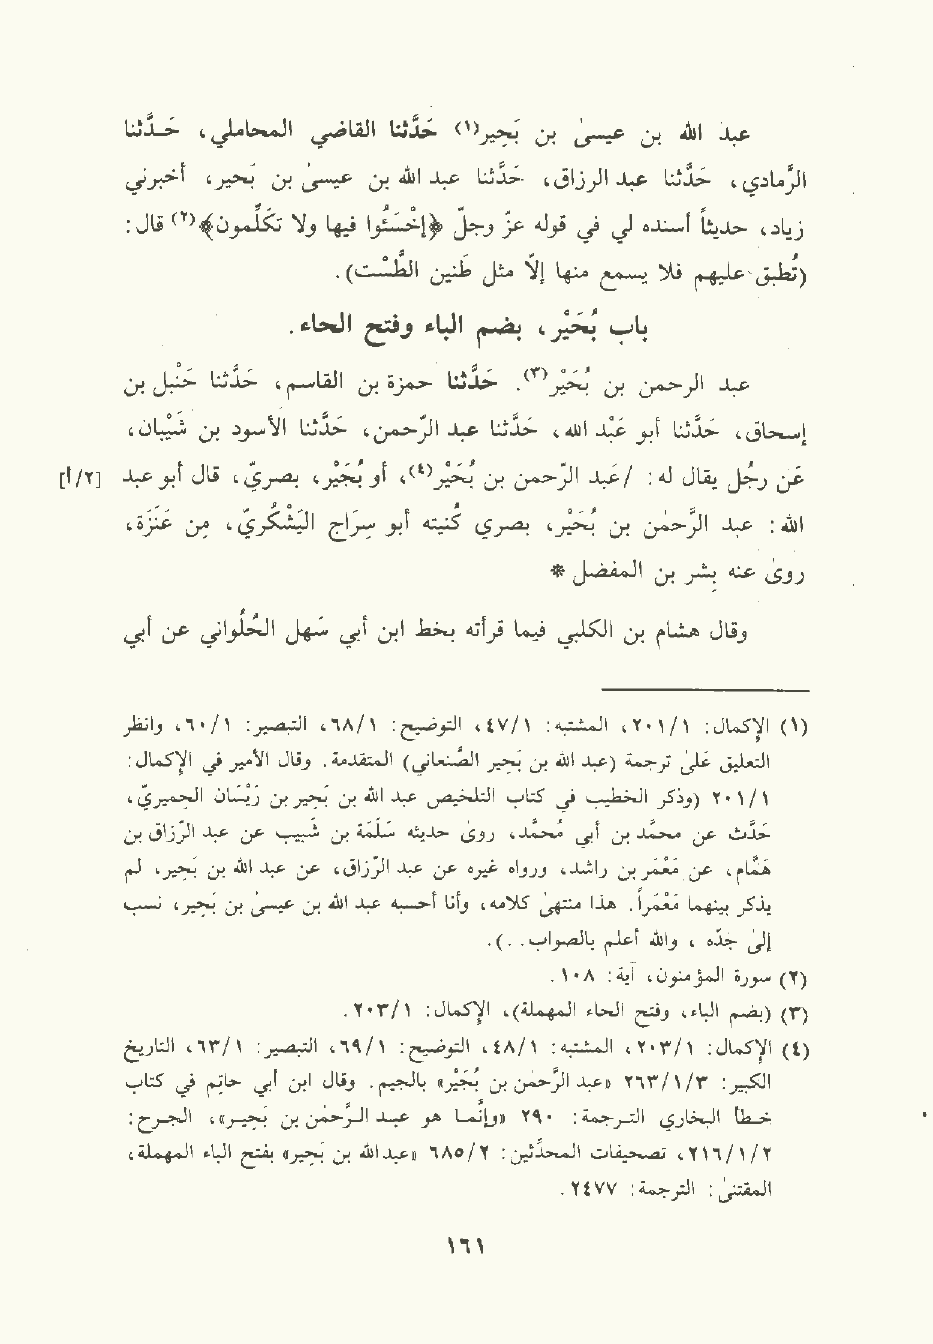 عبد الله بن عيسىٰ بن بَحِير(١) حَدَّثنا القاضي المحاملي، حَـدَّثنا
الرَّمادي، حَدَّثنا عبد الرزاق، حَدَّثنا عبد الله بن عيسىٰ بن بَحير، أخبرني
زياد، حديثاً أسنده لي في قوله عزّ وجلّ ﴿إخْسَئُوا فيها ولا تكَلِّمون﴾(٢) قال:
(تُطبق عليهم فلا يسمع منها إلّا مثل طَنين الطَّسْت).
باب بُحَيْر، بضم الباء وفتح الحاء.
عبد الرحمن بن بُحَيْر(٣). حَدَّثنا حمزة بن القاسم، حَدَّثنا حَنْبل بن
إسحاق، حَدَّثنا أبو عَبْد الله، حَدَّثنا عبد الرَّحمن، حَدَّثنا الأسود بن شَيْبان،
عَن رجُل يقال له: /عَبد الرَّحمن بن بُحَيْر(٤)، أو بُجَيْر، بصريّ، قال أبو عبد [٢/أ]
الله: عبد الرَّحمٰن بن بُحَيْر، بصري كُنيته أبو سِرَاج اليَشْكُريّ، من عَنَزة،
روىٰ عنه بِشر بن المفضل *
وقال هشام بن الكلبي فيما قرأته بخط ابن أبي سَهل الحُلْواني عن أبي
(١) الإكمال: ٢٠١/١، المشتبه: ٤٧/١، التوضيح: ٦٨/١، التبصير: ٦٠/١، وانظر
التعليق علىٰ ترجمة (عبد الله بن بَحِير الصَّنعاني) المتقدمة. وقال الأمير في الإكمال:
٢٠١/١ (وذكر الخطيب في كتاب التلخيص عبد الله بن بَحِير بن رَيْسَان الحِميريّ،
حَدَّث عن محمَّد بن أبي مُحمَّد، وروىٰ حديثه سَلَمَة بن شَبيب عن عبد الرَّزاق بن
هَمَّام، عن مَعْمَر بن راشد، ورواه غيره عن عبد الرَّزاق، عن عبد الله بن بَحِير، لم
يذكر بينهما مَعْمَراً. هذا منتهىٰ كلامه، وأنا أحسبه عبد الله بن عيسىٰ بن بَحِير، نسب
إلىٰ جَدّه ، والله أعلم بالصواب. .).
(٢) سورة المؤمنون، آية: ١٠٨.
(٣) (بضم الباء، وفتح الحاء المهملة)، الإكمال: ٢٠٣/١.
(٤) الإكمال: ٢٠٣/١، المشتبه: ٤٨/١، التوضيح: ٦٩/١، التبصير: ٦٣/١، التاريخ
الكبير: ٢٦٣/١/٣ «عبد الرَّحمٰن بن بُجَيْر» بالجيم. وقال ابن أبي حاتِم في كتاب
خـطأ البخاري التـرجمة: ٢٩٠ «وإنَّمـا هو عبـد الرَّحمٰن بن بَحِيـر»، الجـرح:
٢١٦/١/٢، تصحيفات المحدِّثين: ٦٨٥/٢ «عبد الله بن بَحِير» بفتح الباء المهملة،
المقتنىٰ: الترجمة: ٢٤٧٧.
١٦١